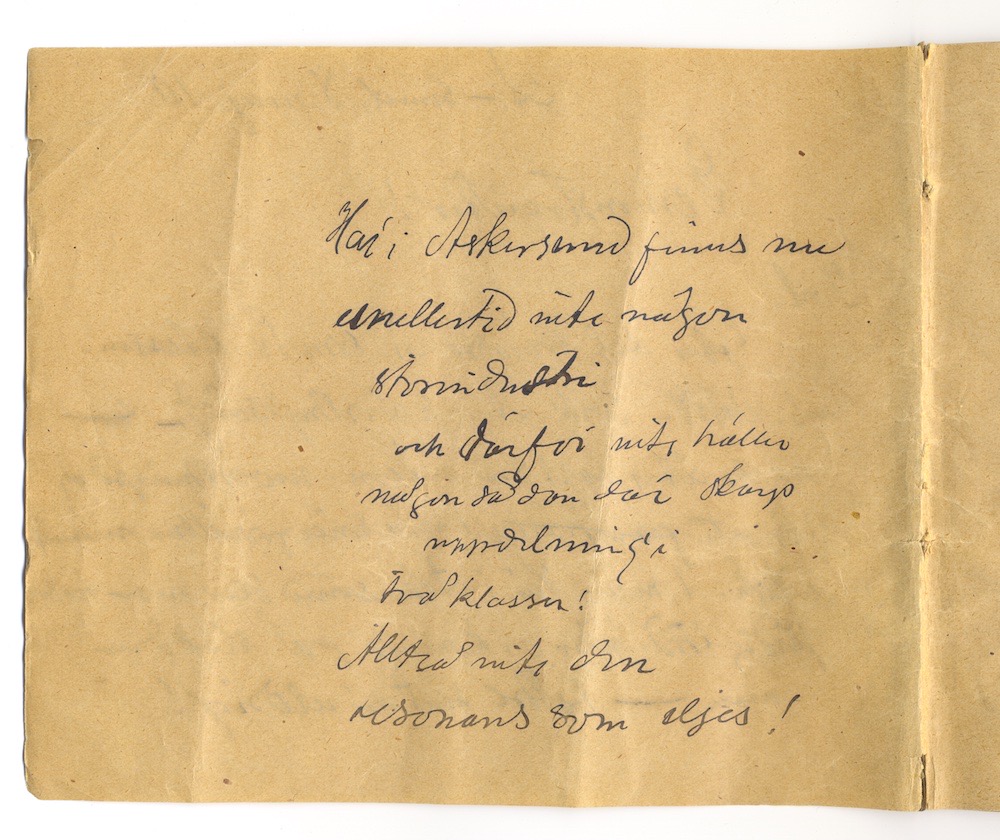 Här i Askersund finns nu
emellertid inte någon
storindustri
och därför inte heller
någon sådan där skarp
uppdelning i
två klasser!
Alltså inte den
resonans som eljes!